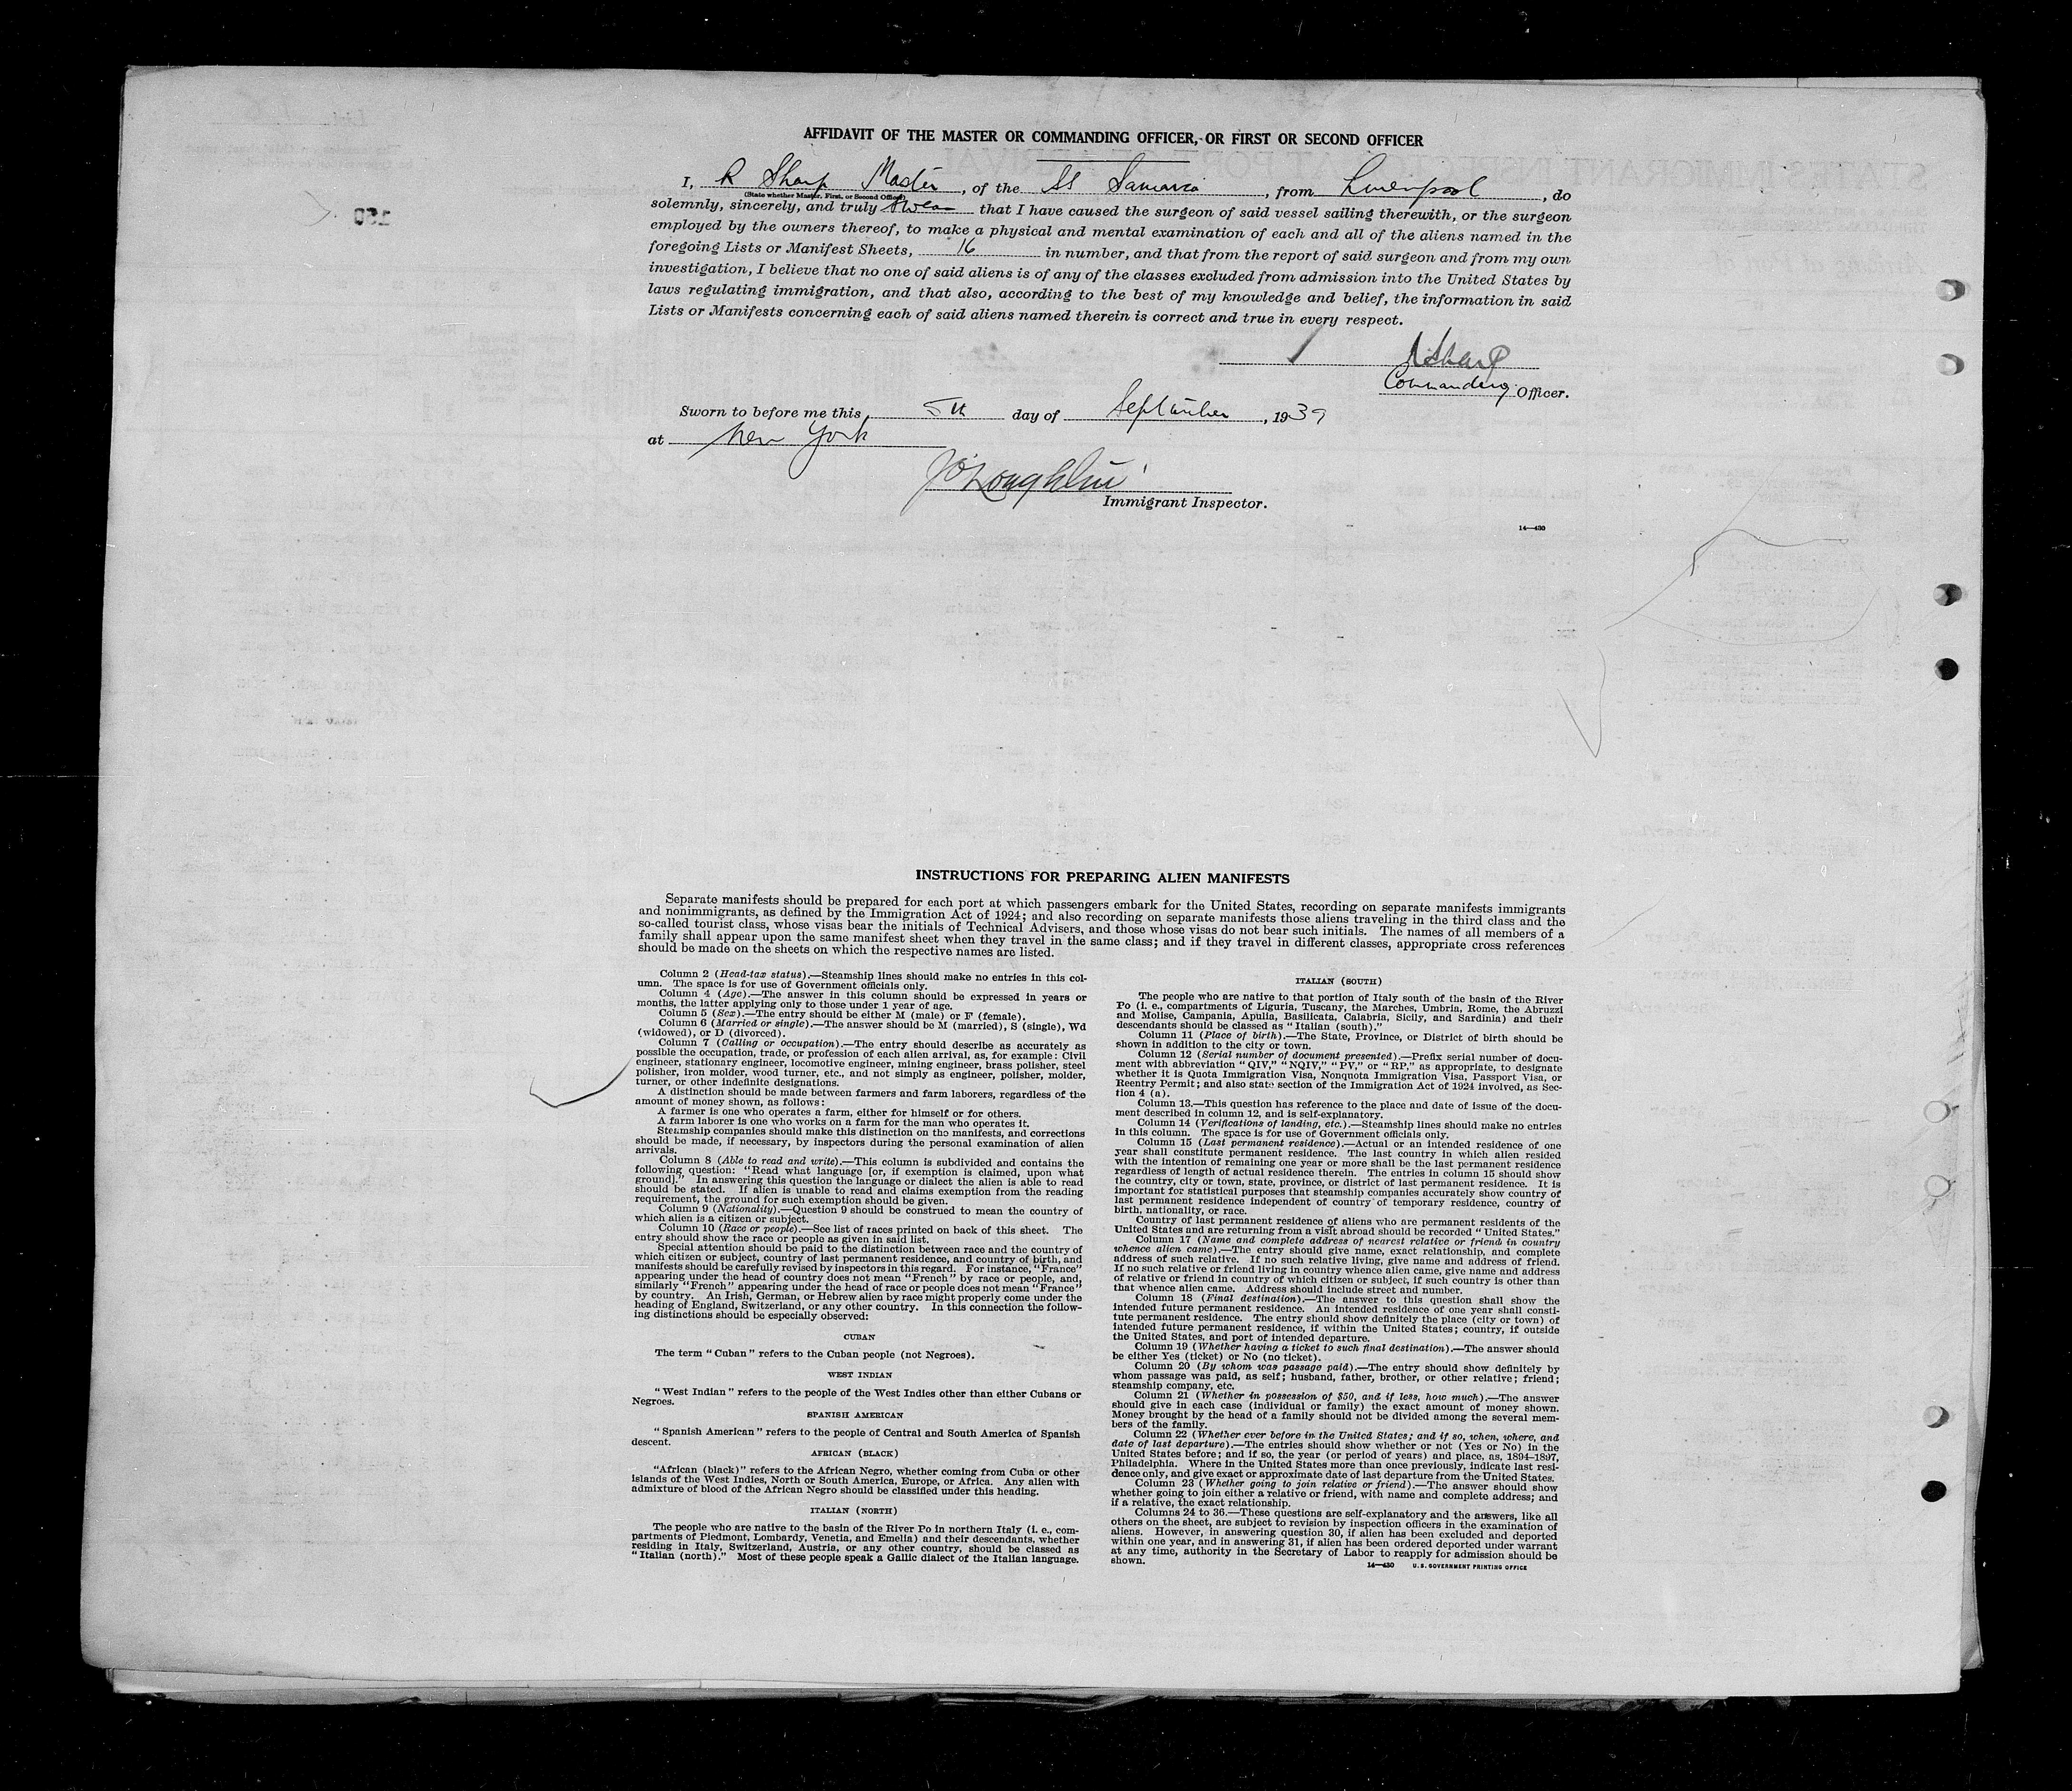 AFFIDAVIT OF THE MASTER OR COMMANDING OFFICER, OR FIRST OR SECOND OFFICER
I, R Sharp Master, of the SS Samaria, from Liverpool, do
(State whether Master, First, or Second Officer)
solemnly, sincerely, and truly swear that I have caused the surgeon of said vessel sailing therewith, or the surgeon
employed by the owners thereof, to make a physical and mental examination of each and all of the aliens named in the
foregoing Lists or Manifest Sheets, 16 in number, and that from the report of said surgeon and from my own
investigation, I believe that no one of said aliens is of any of the classes excluded from admission into the United States by
laws regulating immigration, and that also, according to the best of my knowledge and belief, the information in said
Lists or Manifests concerning each of said aliens named therein is correct and true in every respect.
R Sharp
Commanding Officer.
Sworn to before me this 5th day of September, 1939
at New York
J O'Loughlin
Immigrant Inspector.
14—430
INSTRUCTIONS FOR PREPARING ALIEN MANIFESTS
Separate manifests should be prepared for each port at which passengers embark for the United States, recording on separate manifests immigrants
and nonimmigrants, as defined by the Immigration Act of 1924; and also recording on separate manifests those aliens traveling in the third class and the
so-called tourist class, whose visas bear the initials of Technical Advisers, and those whose visas do not bear such initials. The names of all members of a
family shall appear upon the same manifest sheet when they travel in the same class; and if they travel in different classes, appropriate cross references
should be made on the sheets on which the respective names are listed.
Column 2 (Head-tax status).—Steamship lines should make no entries in this col-
umn. The space is for use of Government officials only.
Column 4 (Age).—The answer in this column should be expressed in years or
months, the latter applying only to those under 1 year of age.
Column 5 (Sex).—The entry should be either M (male) or F (female).
Column 6 (Married or single).—The answer should be M (married), S (single), Wd
(widowed), or D (divorced).
Column 7 (Calling or occupation).—The entry should describe as accurately as
possible the occupation, trade, or profession of each alien arrival, as, for example: Civil
engineer, stationary engineer, locomotive engineer, mining engineer, brass polisher, steel
polisher, iron molder, wood turner, etc., and not simply as engineer, polisher, molder,
turner, or other indefinite designations.
A distinction should be made between farmers and farm laborers, regardless of the
amount of money shown, as follows:
A farmer is one who operates a farm, either for himself or for others.
A farm laborer is one who works on a farm for the man who operates it.
Steamship companies should make this distinction on the manifests, and corrections
should be made, if necessary, by inspectors during the personal examination of alien
arrivals.
Column 8 (Able to read and write).—This column is subdivided and contains the
following question: "Read what language [or, if exemption is claimed, upon what
ground]." In answering this question the language or dialect the alien is able to read
should be stated. If alien is unable to read and claims exemption from the reading
requirement, the ground for such exemption should be given.
Column 9 (Nationality).—Question 9 should be construed to mean the country of
which alien is a citizen or subject.
Column 10 (Race or people).—See list of races printed on back of this sheet. The
entry should show the race or people as given in said list.
Special attention should be paid to the distinction between race and the country of
which citizen or subject, country of last permanent residence, and country of birth, and
manifests should be carefully revised by inspectors in this regard. For instance, "France"
appearing under the head of country does not mean "French" by race or people, and,
similarly "French" appearing under the head of race or people does not mean "France"
by country. An Irish, German, or Hebrew alien by race might properly come under the
heading of England, Switzerland, or any other country. In this connection the follow-
ing distinctions should be especially observed:
CUBAN
The term "Cuban" refers to the Cuban people (not Negroes).
WEST INDIAN
"West Indian" refers to the people of the West Indies other than either Cubans or
Negroes.
SPANISH AMERICAN
"Spanish American" refers to the people of Central and South America of Spanish
descent.
AFRICAN (BLACK)
"African (black)" refers to the African Negro, whether coming from Cuba or other
islands of the West Indies, North or South America, Europe, or Africa. Any alien with
admixture of blood of the African Negro should be classified under this heading.
ITALIAN (NORTH)
The people who are native to the basin of the River Po in northern Italy (i. e., com-
partments of Piedmont, Lombardy, Venetia, and Emelia) and their descendants, whether
residing in Italy, Switzerland, Austria, or any other country, should be classed as
"Italian (north)." Most of these people speak a Gallic dialect of the Italian language.
ITALIAN (SOUTH)
The people who are native to that portion of Italy south of the basin of the River
Po (i. e., compartments of Liguria, Tuscany, the Marches, Umbria, Rome, the Abruzzi
and Molise, Campania, Apulia, Basilicata, Calabria, Sicily, and Sardinia) and their
descendants should be classed as "Italian (south)."
Column 11 (Place of birth).—The State, Province, or District of birth should be
shown in addition to the city or town.
Column 12 (Serial number of document presented).—Prefix serial number of docu-
ment with abbreviation "QIV," "NQIV," "PV," or "RP," as appropriate, to designate
whether it is Quota Immigration Visa, Nonquota Immigration Visa, Passport Visa, or
Reentry Permit; and also state section of the Immigration Act of 1924 involved, as Sec-
tion 4 (a).
Column 13.—This question has reference to the place and date of issue of the docu-
ment described in column 12, and is self-explanatory.
Column 14 (Verifications of landing, etc.).—Steamship lines should make no entries
in this column. The space is for use of Government officials only.
Column 15 (Last permanent residence).—Actual or an intended residence of one
year shall constitute permanent residence. The last country in which alien resided
with the intention of remaining one year or more shall be the last permanent residence
regardless of length of actual residence therein. The entries in column 15 should show
the country, city or town, state, province, or district of last permanent residence. It is
important for statistical purposes that steamship companies accurately show country of
last permanent residence independent of country of temporary residence, country of
birth, nationality, or race.
Country of last permanent residence of aliens who are permanent residents of the
United States and are returning from a visit abroad should be recorded "United States."
Column 17 (Name and complete address of nearest relative or friend in country
whence alien came).—The entry should give name, exact relationship, and complete
address of such relative. If no such relative living, give name and address of friend.
If no such relative or friend living in country whence alien came, give name and address
of relative or friend in country of which citizen or subject, if such country is other than
that whence alien came. Address should include street and number.
Column 18 (Final destination).—The answer to this question shall show the
intended future permanent residence. An intended residence of one year shall consti-
tute permanent residence. The entry should show definitely the place (city or town) of
intended future permanent residence, if within the United States; country, if outside
the United States, and port of intended departure.
Column 19 (Whether having a ticket to such final destination).—The answer should
be either Yes (ticket) or No (no ticket).
Column 20 (By whom was passage paid).—The entry should show definitely by
whom passage was paid, as self; husband, father, brother, or other relative; friend;
steamship company, etc.
Column 21 (Whether in possession of $50, and if less, how much).—The answer
should give in each case (individual or family) the exact amount of money shown.
Money brought by the head of a family should not be divided among the several mem-
bers of the family.
Column 22 (Whether ever before in the United States; and if so, when, where, and
date of last departure).—The entries should show whether or not (Yes or No) in the
United States before; and if so, the year (or period of years) and place, as, 1894–1897,
Philadelphia. Where in the United States more than once previously, indicate last resi-
dence only, and give exact or approximate date of last departure from the United States.
Column 23 (Whether going to join relative or friend).—The answer should show
whether going to join either a relative or friend, with name and complete address; and
if a relative, the exact relationship.
Columns 24 to 36.—These questions are self-explanatory and the answers, like all
others on the sheet, are subject to revision by inspection officers in the examination of
aliens. However, in answering question 30, if alien has been excluded and deported
within one year, and in answering 31, if alien has been ordered deported under warrant
at any time, authority in the Secretary of Labor to reapply for admission should be
shown.
14—430 U. S. GOVERNMENT PRINTING OFFICE